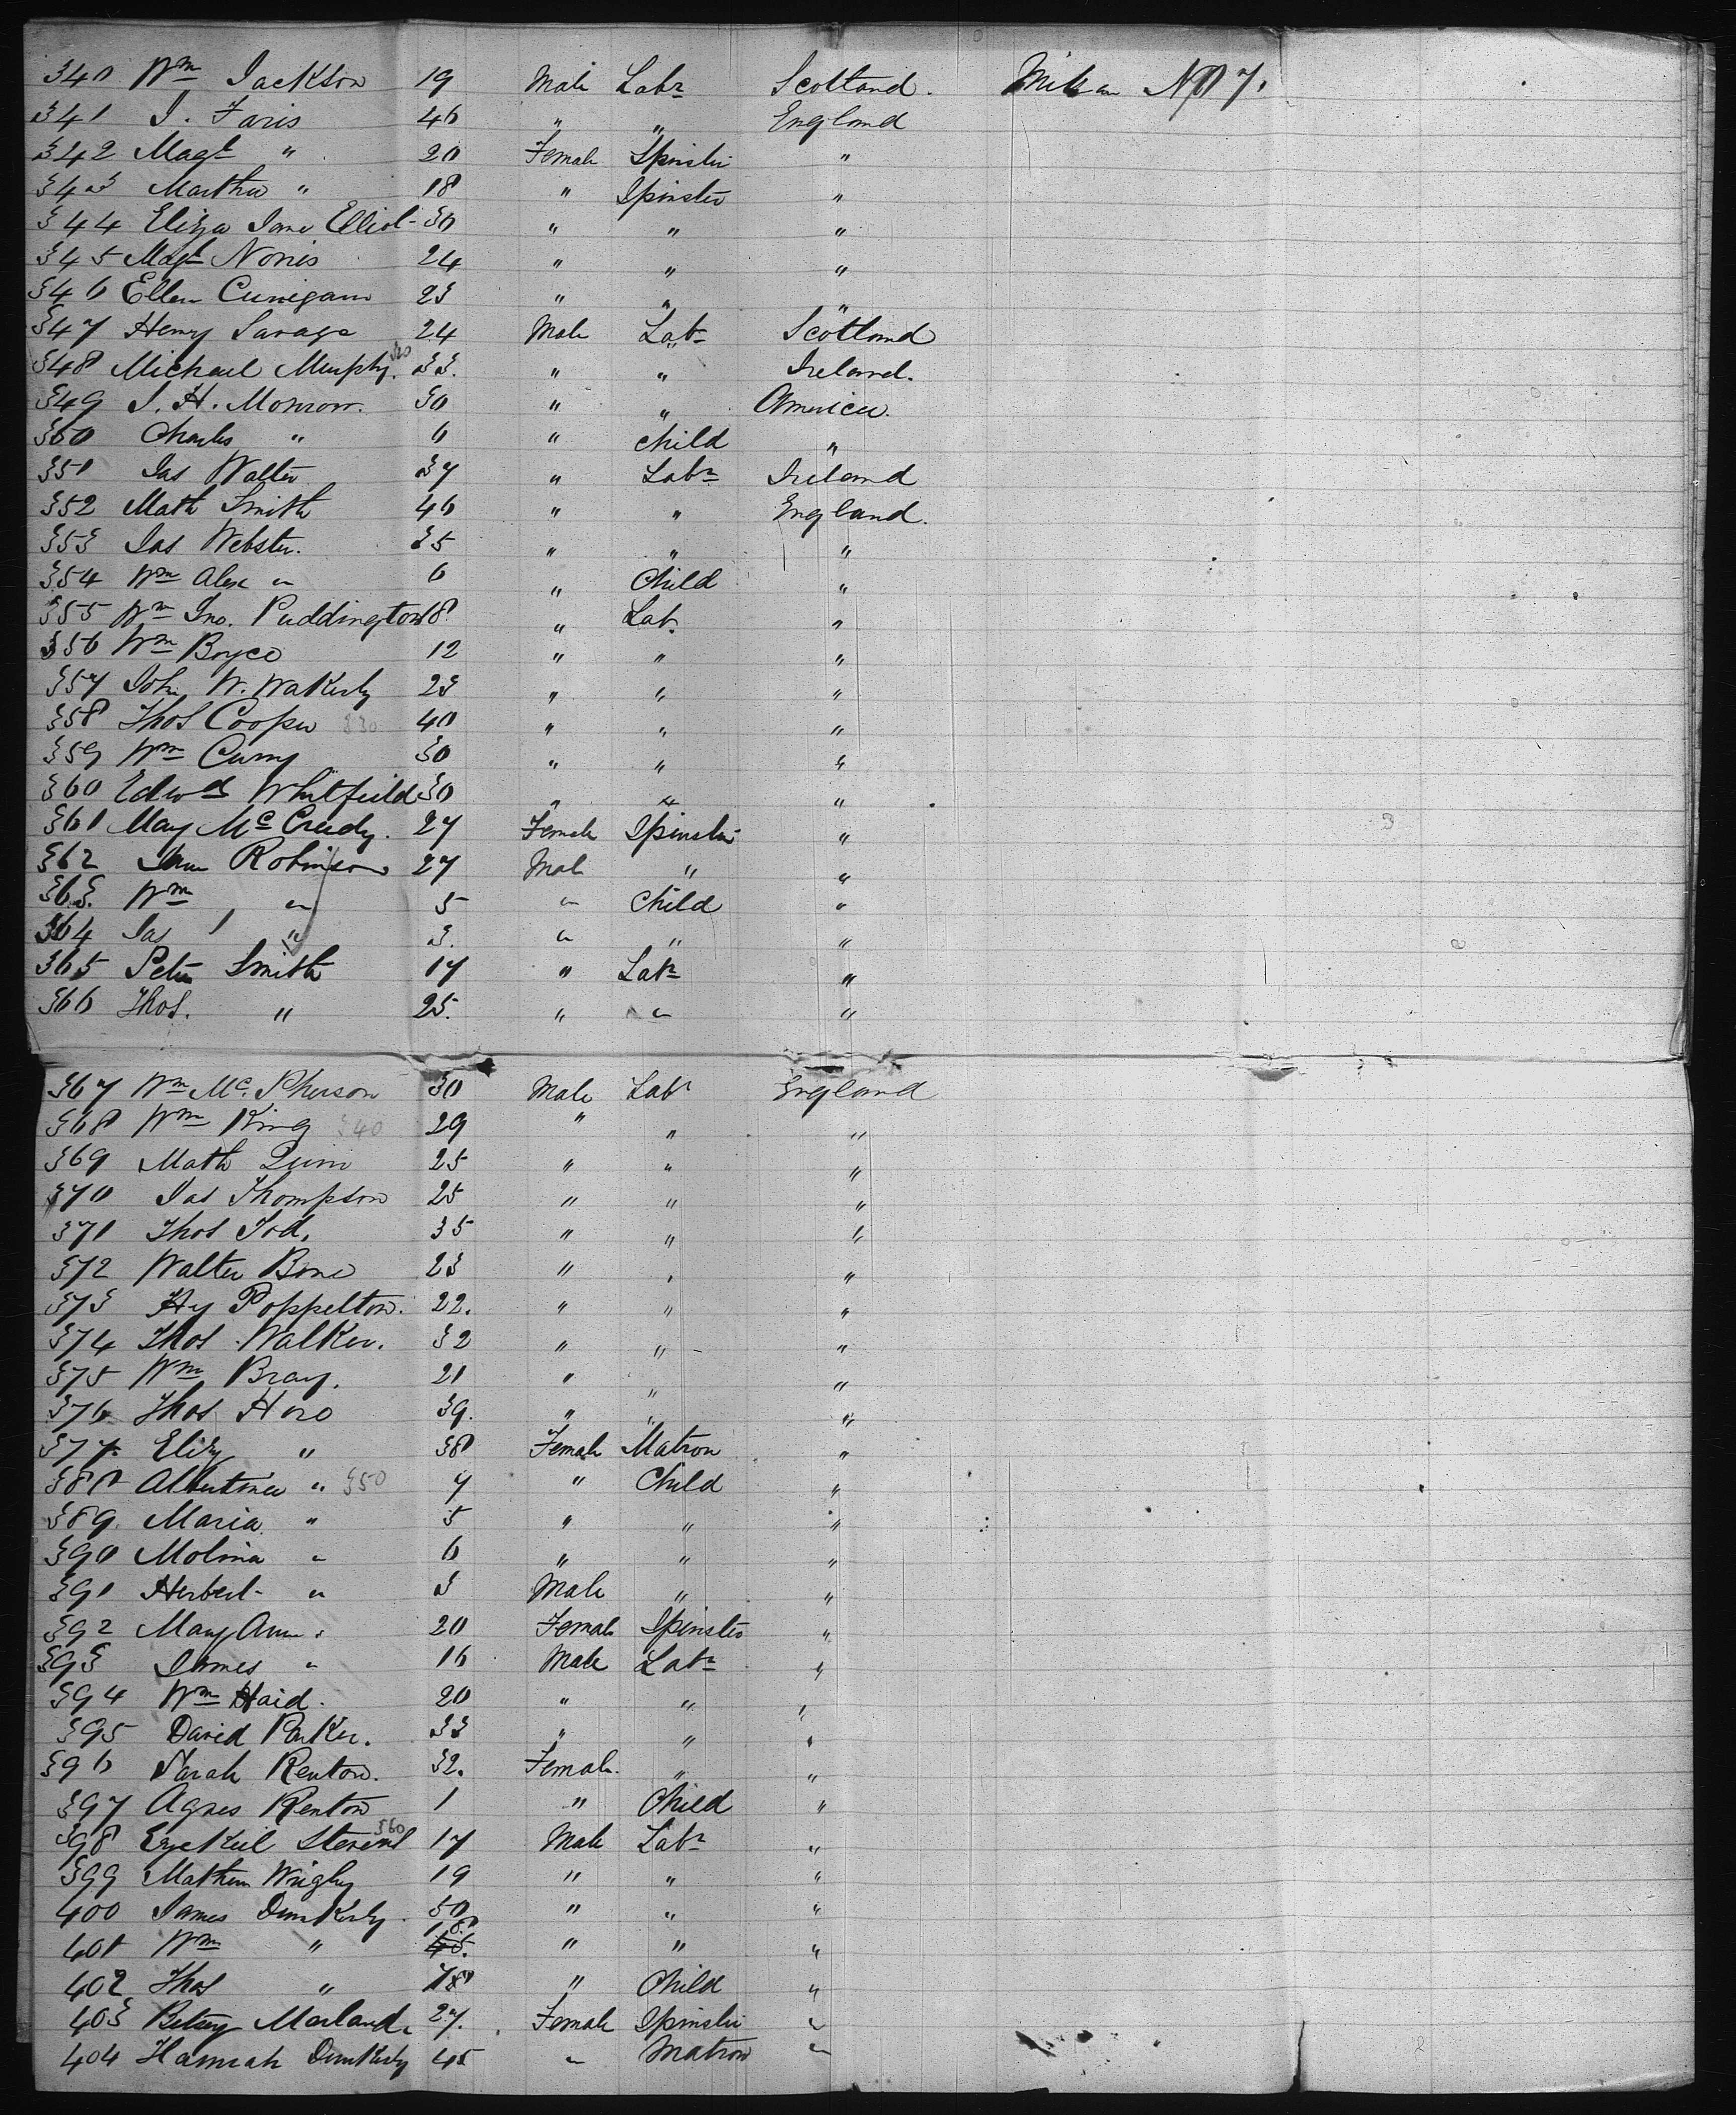 340 Wm Jackson 19 Male Labr Scotland. N
341 J. Faris 46 " " England
342 Magt " 20 Female Spinster "
343 Martha " 18 " Spinster "
344 Eliza Jane Elliot 30 " " "
345 Magt Norris 24 " " "
346 Ellen Cunigam 23 " " "
347 Henry Savage 24 Male Labr Scotland
348 Michael Murphy. 320 33. " " Ireland.
349 J. H. Monrow. 30 " " America.
350 Charles " 6 " Child "
351 Jas Walter 37 " Labr Ireland
352 Math Smith 46 " " England.
353 Jas Webster. 35 " " "
354 Wm Alex " 6 " Child "
355 Wm Jno. Puddington 18 " Lab. "
356 Wm Boyce 12 " " "
357 John W. Wakerly 23 " " "
358 Thos Cooper 330 40 " " "
359 Wm Curry 30 " " "
360 Edwd Whitfield 30 " " "
361 Mary McCready. 27 Female Spinster "
362 Robinson 27 Male " "
363. Wm " 5 " Child "
364 Jas " 3. " " "
365 Peter Smith 17 " Labr "
366 Thos. " 25. " " "
367 Wm Mc.Pherson 30 Male Labr England
368 Wm King 340 29 " " "
369 Math Quin 25 " " "
370 Jas Thompson 25 " " "
371 Thos Tod. 35 " " "
372 Walter Bone 23 " " "
373 Hy Poppelton. 22. " " "
374 Thos Walker. 32 " " "
375 Wm Bray. 21 " " "
376 Thos Hero 39. " " "
377 Elizh " 38 Female Matron "
388 Albertina " 350 7 " Child "
389 Maria " 5 " " "
390 Molina " 6 " " "
391 Herbert " 3 Male " "
392 Mary Ann " 20 Female Spinster "
393 James " 16 Male Labr "
394 Wm Haid. 20 " " "
395 David Parker. 33 " " "
396 Sarah Renton. 32. Female. " "
397 Agnes Renton 1 " Child "
398 Ezekiel Stevens 360 17 Male Labr "
399 Mathew Wrigley 19 " " "
400 James Dunkerly. 50 " " "
401 Wm " 18. " " "
402 Thos " " Child "
403 Betsey Marland. 27. Female Spinster "
404 Hannah Dunkerly 45 " Matron "